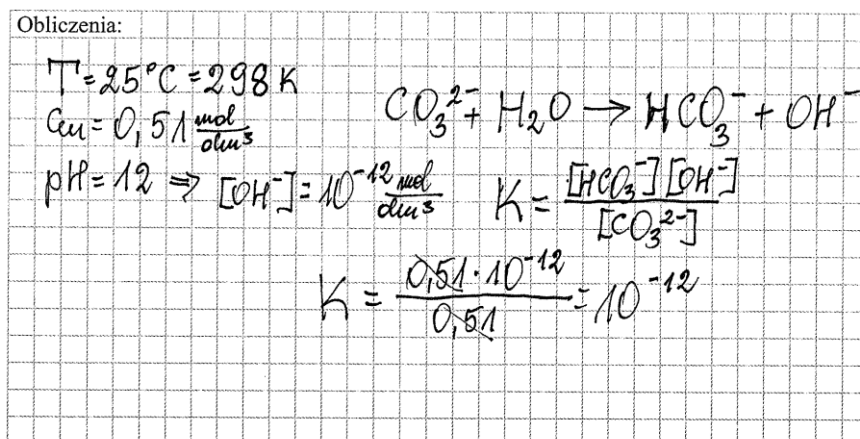 Obliczenia:
T = 25°C = 298 K
Cm = 0,51 mol/dm³
CO₃²⁻ + H₂O → HCO₃⁻ + OH⁻
pH = 12 ⇒ [OH⁻] = 10⁻¹² mol/dm³
K = [HCO₃⁻][OH⁻]/[CO₃²⁻]
K = 0,51 · 10⁻¹²/0,51 = 10⁻¹²